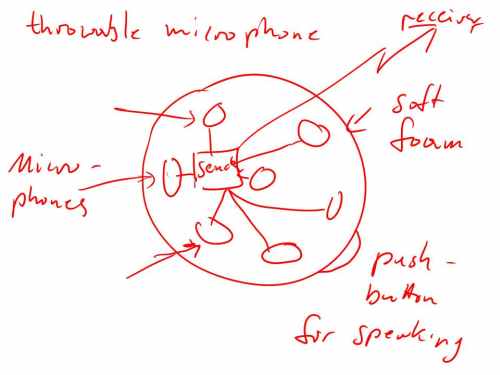 throwable microphone
receiver
soft
foam
Micro-
phones
Sender
push-
button
for speaking